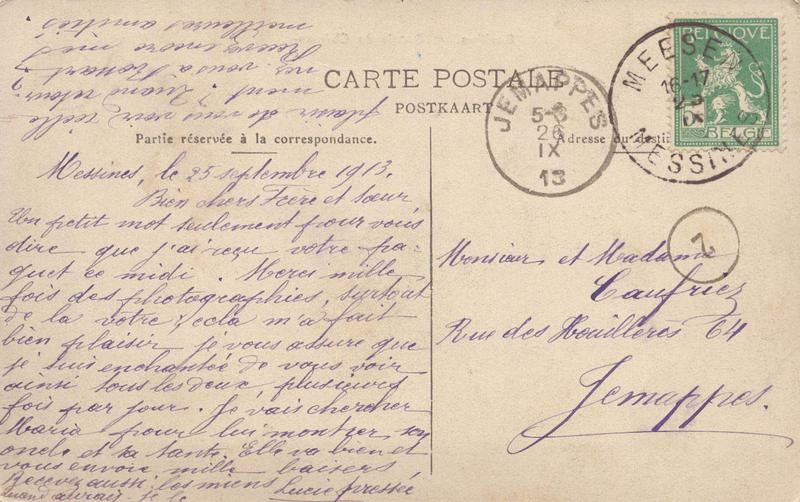 CARTE POSTALE
POSTKAART
Partie réservée à la correspondance.
Adresse du desti
Messines, le 25 septembre 1913.
Bien chers Frère et Sœur
Un petit mot seulement pour vous
dire que j'ai reçu votre pa-
quet ce midi. Merci mille
fois des photographies, surtout
de la votre, cela m'a fait
bien plaisir je vous assure que
je suis enchantée de vous voir
ainsi tous les deux, plusieurs
fois par jour. Je vais chercher
Maria pour lui montrer son
oncle et sa tante. Elle va bien et
vous envoie mille baisers
Recevez aussi les miens Lucie pressée
Quand aurai-je le
plaisir de vous voir réelle
ment? Quand retour-
nez vous à
Recevez encore mes
meilleures amitiés
MEESEN
16-17
25
IX
MESSINES
JEMAPPES
5-6
26
IX
13
BELGIQUE
5
BELGIË
2
Monsieur et Madame
Caufriez
Rue des Houillères 64
Jemappes.